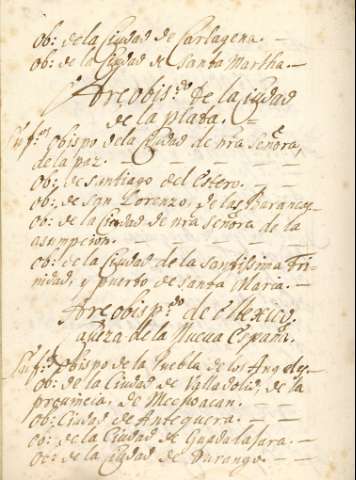 ob: de la Ciudad de Cartagena. —
ob: de la Ciudad de Santa Martha. —
Arcobis.do de la ciudad
de la plata. —
Suf.os obispo de la Ciudad de nra Señora,
de la paz. — — — —
ob: de santiago del estero. — —
ob: de sqn Lorenzo, de las Barancq.
ob: de la Ciudad de nra señora de la
asumpcion. — — — — —
ob: de la Ciudad de la santissima Tri-
nidad, y puerto de santa Maria. —
Arcobisp.do de Mexico,
de la Nueva España.
Suf.os obispo de la Puebla de los Angeles.
ob: de la Ciudad de Valladolid, de la
provincia, de Mechoacan. —
ob: Ciudad de Antequera. — —
ob: de la Ciudad de Guadalaxara. —
ob: de la Ciudad de Durango. — —